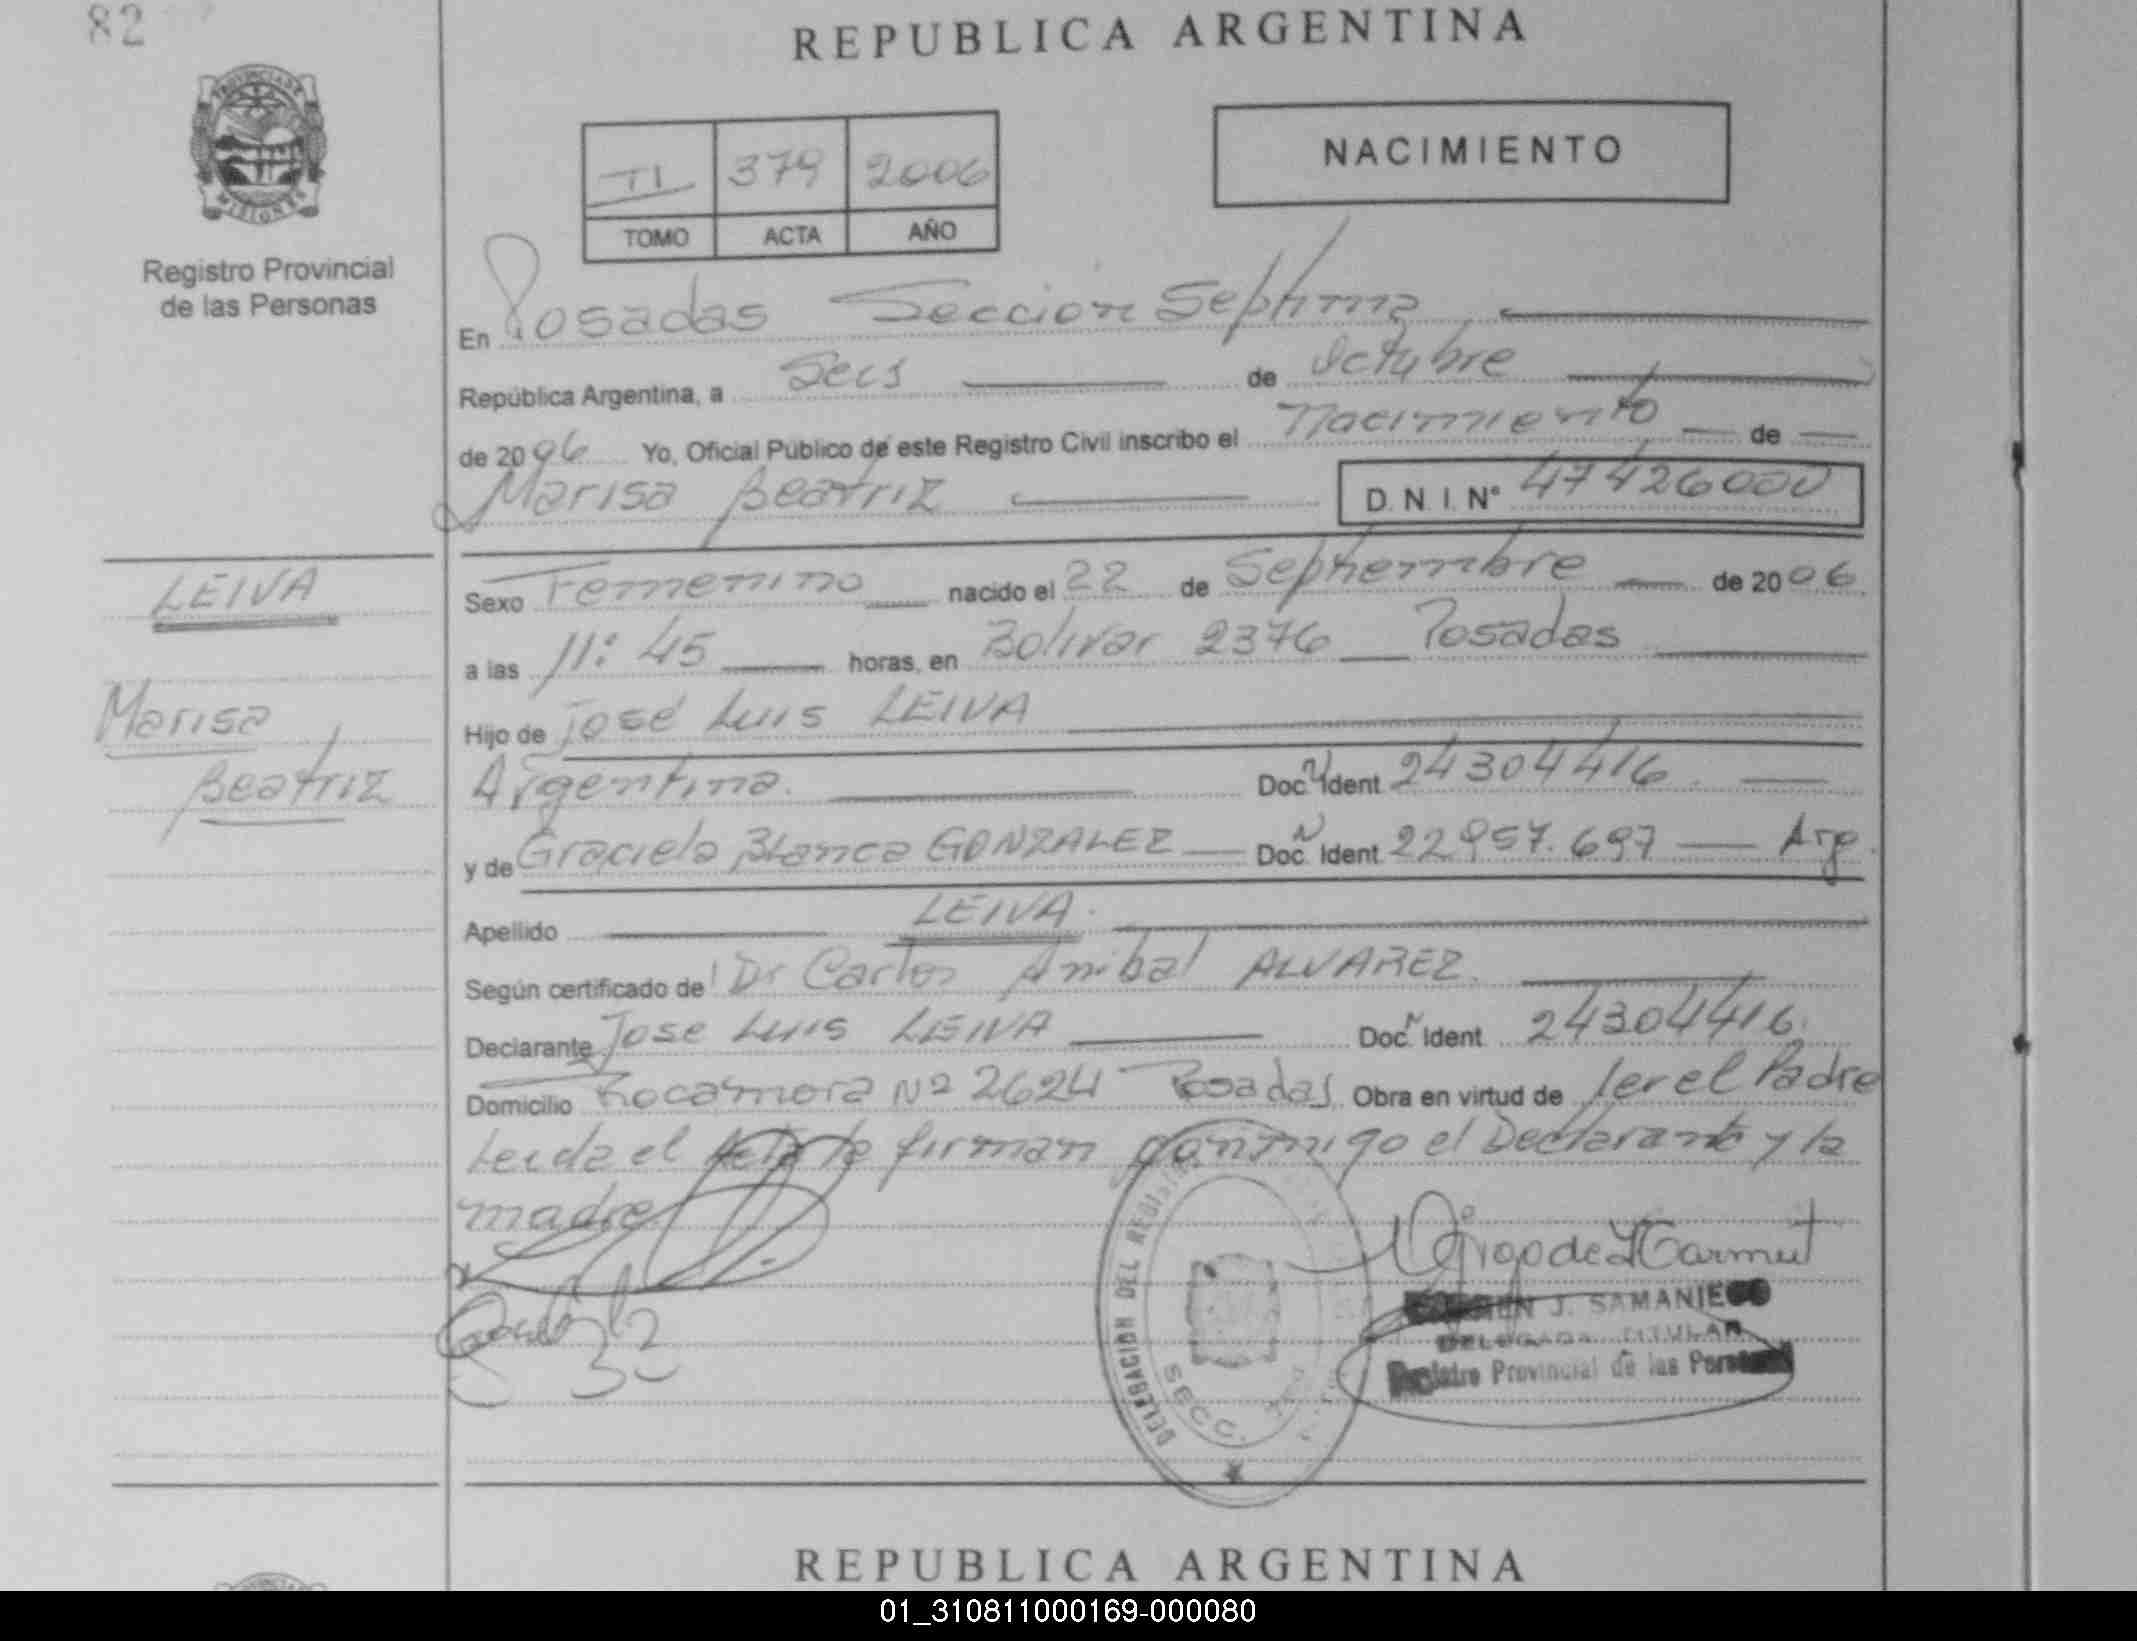 82
REPUBLICA ARGENTINA
PROVINCIA DE
MISIONES
Registro Provincial
de las Personas
TI 379 2006
TOMO ACTA AÑO
NACIMIENTO
En Posadas Seccion Septima
República Argentina, a Seis de Octubre
de 2006 Yo, Oficial Público de este Registro Civil inscribo el Nacimiento de
Marisa Beatriz D. N. I. N° 47426000
LEIVA
Marisa
Beatriz
Sexo Femenino nacido el 22 de Septiembre de 2006
a las 11:45 horas, en Bolivar 2376 Posadas
Hijo de José Luis LEIVA
Argentina. Doc. Ident 24304416
y de Graciela Blanca GONZALEZ Doc. Ident 22957.697 Arg.
Apellido LEIVA.
Según certificado de Dr Carlos Anibal ALVAREZ.
Declarante Jose Luis LEIVA Doc. Ident 24304416.
Domicilio Rocamora Nº 2624 Posadas Obra en virtud de ser el Padre
Leida el Acta la firman conmigo el Declarante y la
madre
DELEGACION DEL REGISTRO
SECC.
J. SAMANIEGO
DELEGADA TITULAR
Registro Provincial de las Personas
REPUBLICA ARGENTINA
01_310811000169-000080